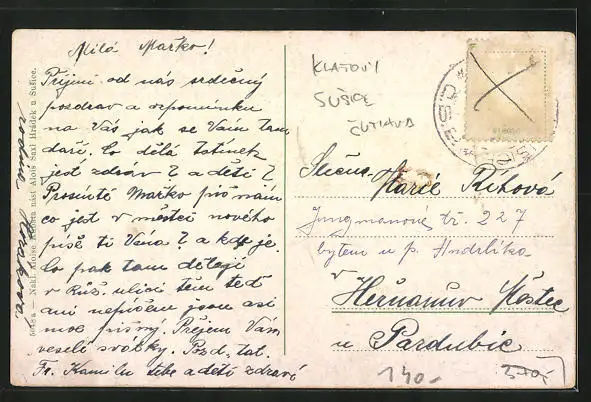 Milá Mařko!
Přijmi od nás srdečný
pozdrav a vzpomínku
na Vás jak se Vám tam
daří. Co dělá tatínek
jest zdráv? a děti?
Prosímtě Mařko piš nám
co jest v městci nového
píše ti Véna? a kde je.
Co pak tam dělají
v Růž. ulici sem teď
ani nepíšem jsou asi
moc pyšný. Přejem Vám
veselé svátky. Pozd. tat.
Fr. Kamilu tebe a děti zdraví
rodina
Nakl. Aloise nást Alois Saxl Hrádek u Sušice.
KLATOVY
SUŠICE
Slečna
Marie Rihová
Jungmanova tř. 227
bytem u p. Hndrlika
v
Heřmanův Městec
u Pardubic
140-
370,-